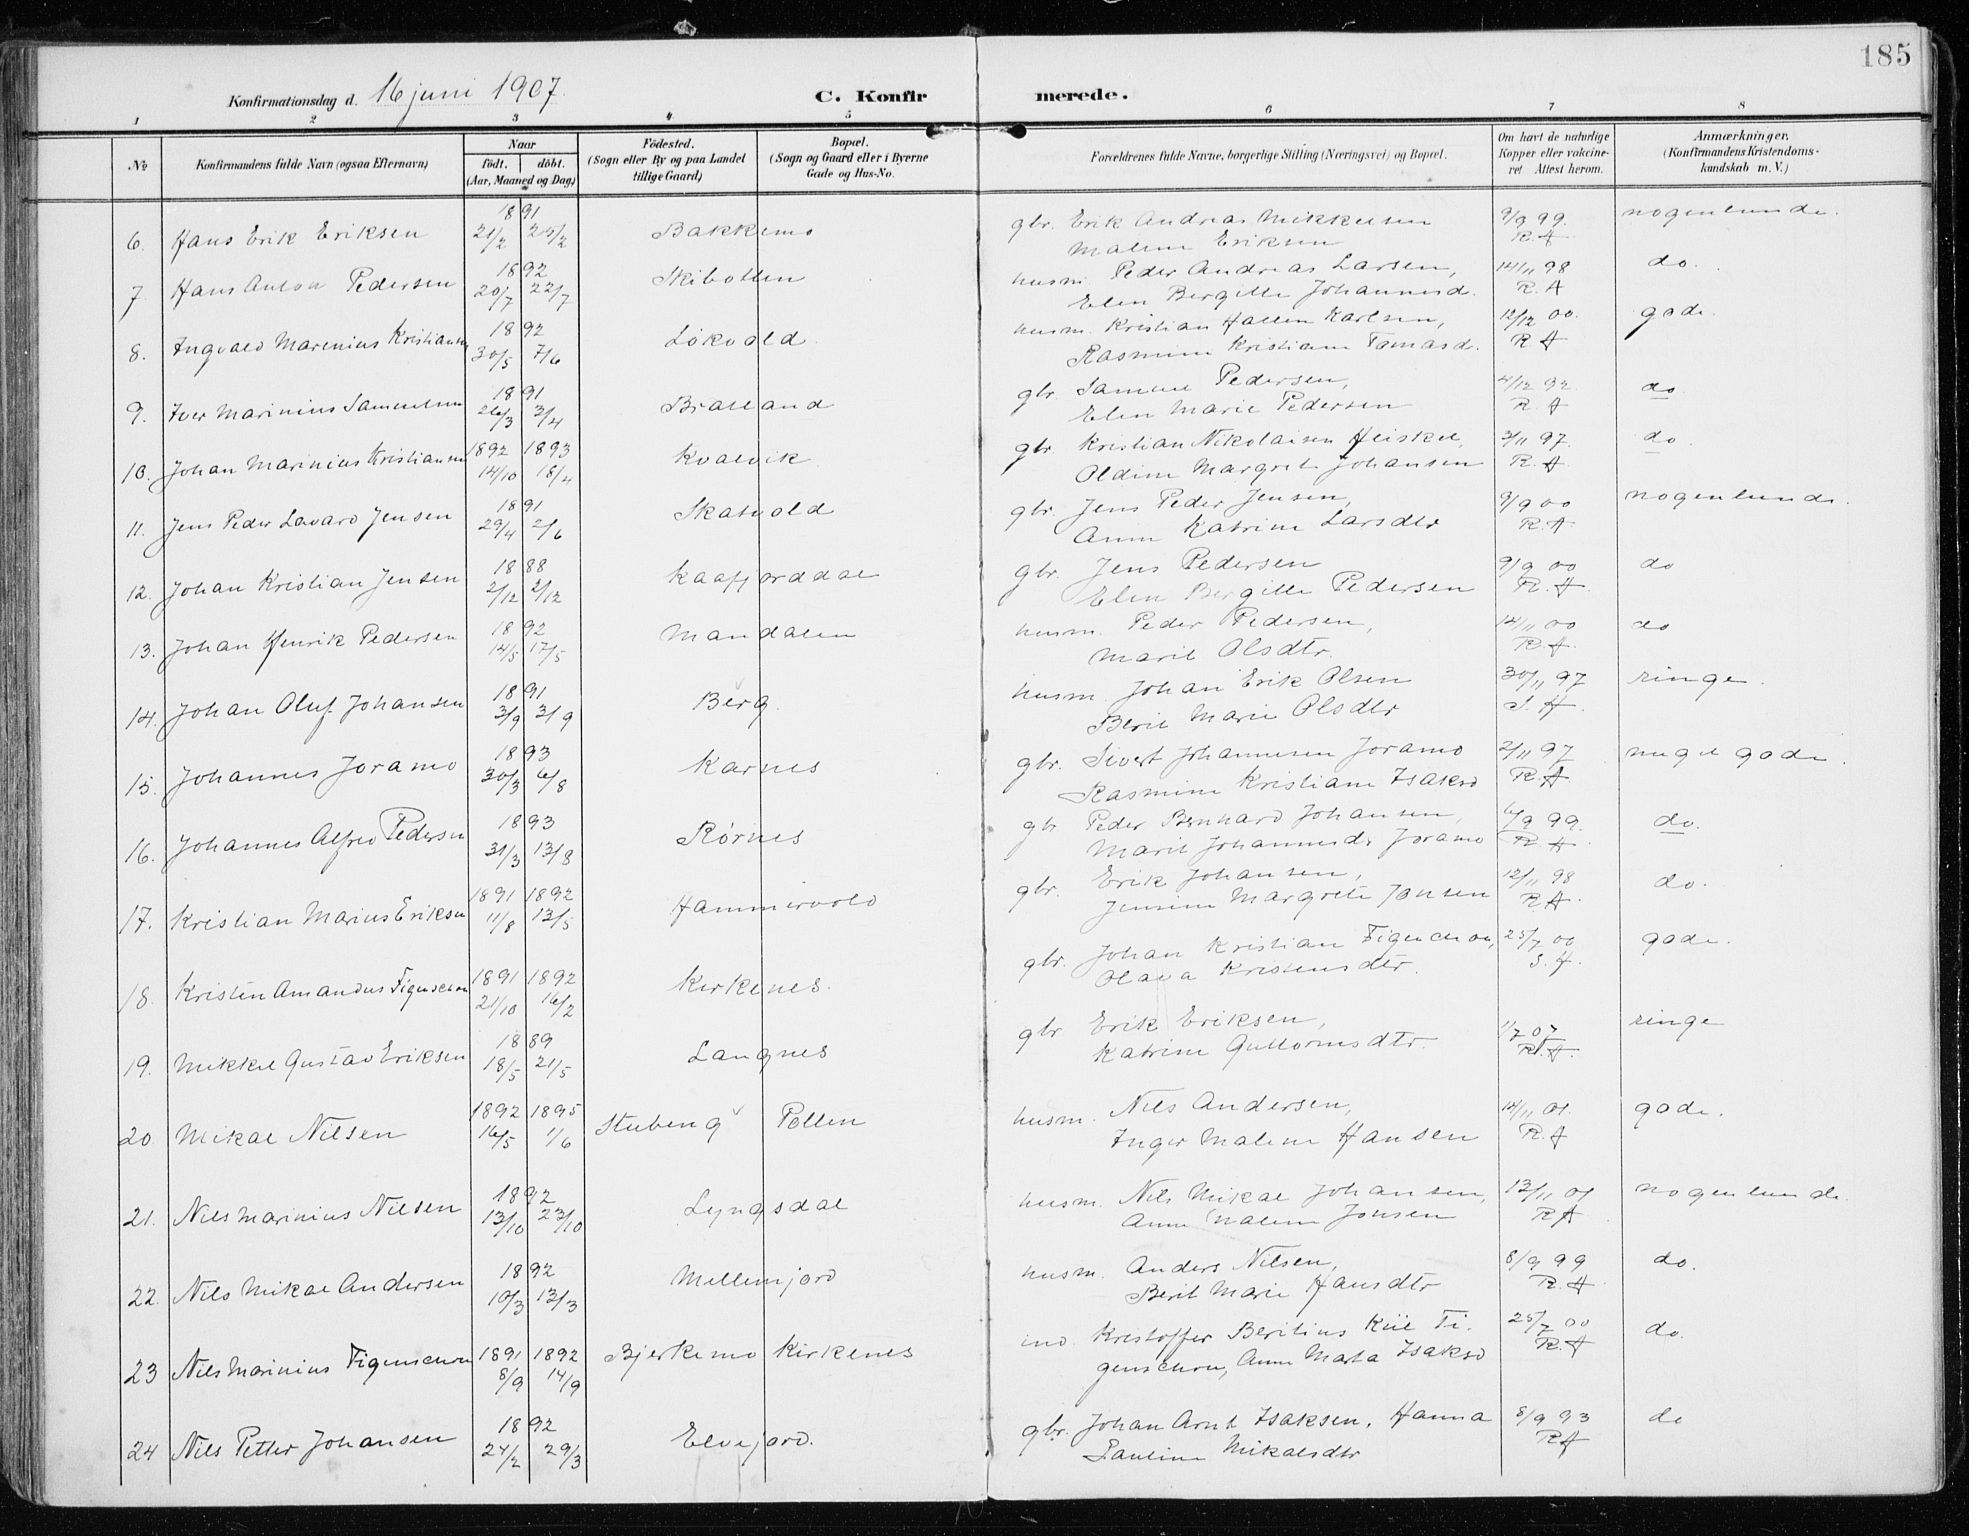 185
Konfirmationsdag d. 16 juni 1907.
C. Konfirmerede.
1 2 3 4 5 6 7 8
No
Konfirmandens fulde Navn (ogsaa Efternavn)
Naar
født. døbt.
(Aar, Maaned og Dag)
Fødested.
(Sogn eller By og paa Landet
tillige Gaard)
Bopæl.
(Sogn og Gaard eller i Byerne
Gade og Hus-No.
Forældrenes fulde Navne, borgerlige Stilling (Næringsvei) og Bopæl.
Om havt de naturlige
Kopper eller vakcine-
ret. Attest herom.
Anmærkninger.
(Konfirmandens Kristendoms-
kundskab m. V.)
1891
6. Hans Erik Eriksen 21/2 25/2 Bakkemo gbr. Erik Andreas Mikkelsen 9/9 99. nogenlunde.
Malene Eriksen R. A
1892
7 Hans Anton Pedersen 20/7 22/7 Skibotten husm. Peder Andreas Larsen, 14/11 98 do.
Elen Bergitte Johannesd. R. A
1892
8. Ingvald Marenius Kristiansen 30/5 7/6 Løkvold husm. Kristian Hallen Karlsen, 12/12 00. gode.
Rasmine Kristiane Tomasd. R A
1891
9. Iver Marinius Samuelsen 26/3 3/4 Brateland gbr. Samuel Pedersen, 4/12 92. do
Elen Marie Pedersen R. A
1892 1893
10. Johan Marinius Kristiansen 14/10 18/4 Kvalvik gbr Kristian Nikolaisen Heiskel, 3/11 97. do.
Oldine Margrete Johansen R. A.
1891
11. Jens Peder Lavard Jensen 29/4 2/6 Skatvold gbr. Jens Peder Jensen, 9/9 00 nogenlunde.
Anne Katrine Larsdtr R. A
1888
12. Johan Kristian Jensen 2/12 2/12 Kaafjorddal gbr. Jens Pedersen 9/9 00 do
Elen Bergitte Pedersen R. A.
1892
13. Johan Henrik Pedersen 14/5 17/5 Mandalen husm. Peder Pedersen, 14/11 00 do
Marit Olsdtr. R. A.
1891
14. Johan Oluf Johansen 3/9 3/9 Berg husm. Johan Erik Olsen 30/11 97 ringe.
Berit Marie Olsdtr S. H.
1893
15. Johannes Joramo 30/3 6/8 Karnes gbr. Sivert Johannesen Joramo 2/11 97 meget gode.
Rasmine Kristiane Isaksd R. A
1893
16. Johannes Alfred Pedersen 31/3 13/8 Rørnes gbr Peder Bernhard Johansen, 6/9 99. do.
Marit Johannesdr Joramo R. A.
1891 1892
17. Kristian Marius Eriksen 11/8 13/5 Hammervold gbr. Erik Johansen, 12/11 98 do.
Jensine Margrete Jonsen R A.
1891 1892
18. Kristen Amandus Figenschou 21/10 16/2 Kirkenes. gbr. Johan Kristian Figenschou, 25/7 00 gode.
Olava Kristensdtr.
1889
19. Mikkel Gustav Eriksen 18/5 21/5 Langnes gbr Erik Eriksen, 1/7 07 ringe
Katrine Guttormsdtr. R. A.
1892 1895
20 Mikal Nilsen 16/5 1/6 Stubeng Pollen husm. Nils Andersen, 14/11 01. gode.
Inger Malene Hansen R. A
1892
21. Nils Marinius Nilsen 13/10 23/10 Lyngsdal husm. Nils Mikal Johansen, 13/11 01 nogenlunde.
Anne Malene Jonsen R A
1892
22. Nils Mikal Andersen 10/3 13/3 Mellemjord husm. Anders Nilsen, 8/9 99 do.
Berit Marie Hansdtr R. A
1891 1892
23 Nils Marinius Figenschou 8/9 14/9 Bjerkemo Kirkenes ind. Kristoffer Beritius Kiil Fi- 25/7 00 do.
genschou, Anne Marta Isaksd R. A
1892
24 Nils Petter Johansen 24/2 29/3 Elvejord. gbr. Johan Arnt Isaksen, Hanna 8/9 93 do
Pauline Mikalsdtr R A